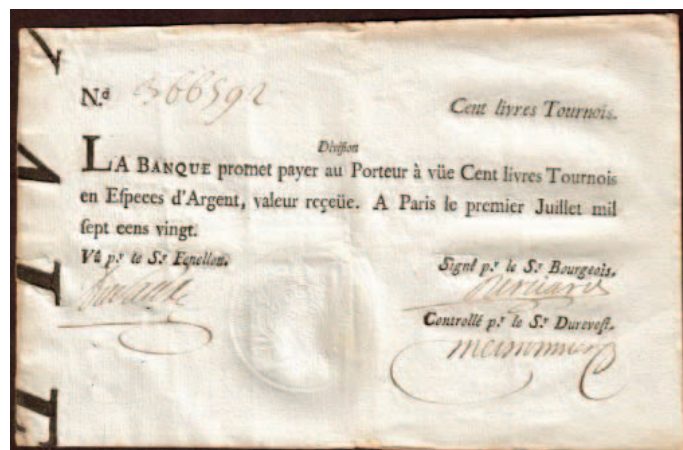 N.º 366592
Cent livres Tournois.
Division
LA BANQUE promet payer au Porteur à vüe Cent livres Tournois
en Eſpeces d'Argent, valeur reçeüe. A Paris le premier Juillet mil
ſept cens vingt.
Vû p.r le S.r Fenellon.
Signé p.r le S.r Bourgeois.
Controllé p.r le S.r Dureveſt.